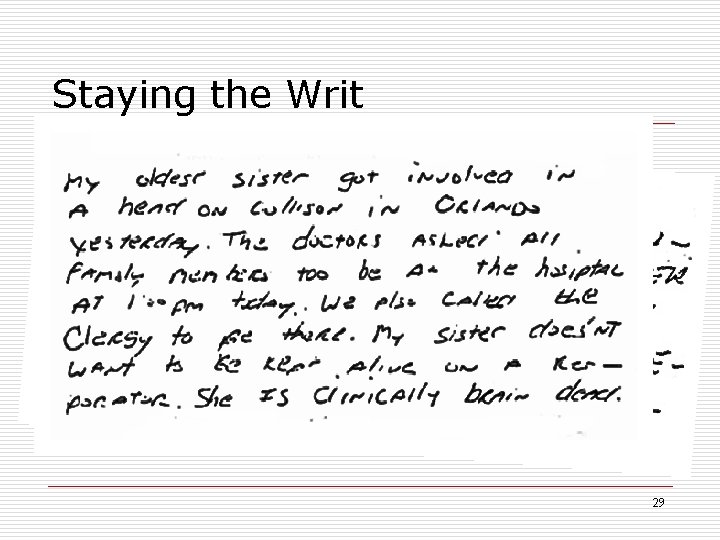 Staying the Writ
My oldest sister got involved in
A head on Collison in ORLANDO
yesterday. The doctors Asked All
Family members too be At the hosiptal
AT 1:00 pm today. We also called the
Clergy to be there. My sister does'NT
WANT to be kept Alive on A Res-
porator. She IS Clinically brain dead.
29